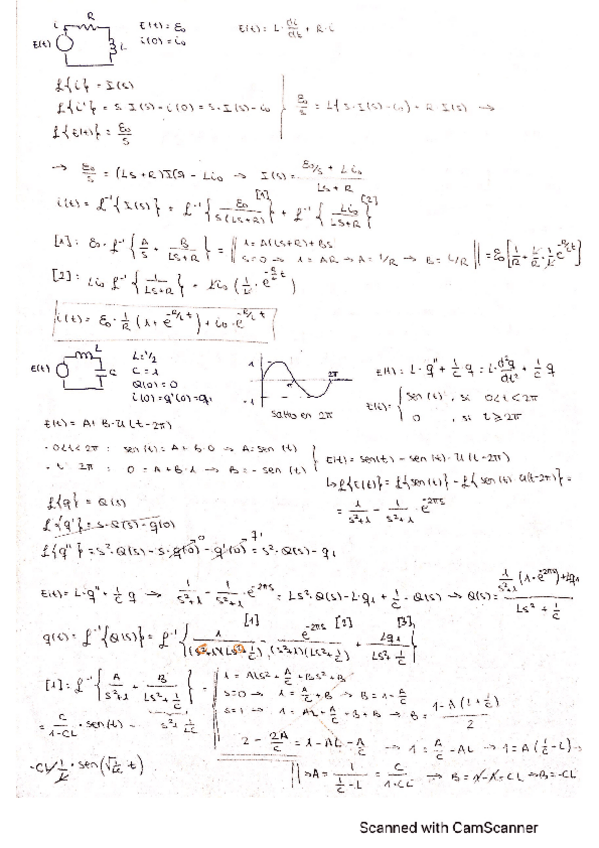 i R L E(t)
E(t) = ε₀
i(0) = i₀
E(t) = L · di/dt + R · i
ℒ{i} = I(s)
ℒ{i'} = s · I(s) - i(0) = s · I(s) - i₀
ℒ{E(t)} = ε₀/s
ε₀/s = L(s · I(s) - i₀) + R · I(s) →
→ ε₀/s = (Ls + R) I(s) - Li₀ → I(s) = (ε₀/s + Li₀)/(Ls + R)
i(t) = ℒ⁻¹{I(s)} = ℒ⁻¹{ε₀/(s(Ls+R))} [1] + ℒ⁻¹{Li₀/(Ls+R)} [2]
[1]: ε₀ · ℒ⁻¹{A/s + B/(Ls+R)} = || 1 = A(Ls+R) + Bs
s=0 → 1 = AR → A = 1/R → B = L/R ||
[2]: Li₀ ℒ⁻¹{1/(Ls+R)}
i(t) = ε₀ · 1/R (1 + e^(-R/L t)) + i₀ · e^(-R/L t)
E(t) L C
L = 1/2
C = 1
Q(0) = 0
i(0) = q'(0) = q₁
1 π 2π -1
Salto en 2π
E(t) = L · q'' + 1/C q = L · d²q/dt² + 1/C q
E(t) = { sen(t), si 0<t<2π
0, si t≥2π
E(t) = A + B · U(t-2π)
· 0<t<2π : sen(t) = A + B · 0 → A = sen(t)
· t 2π : 0 = A + B · 1 → B = - sen(t)
E(t) = sen(t) - sen(t) · U(t-2π)
↳ ℒ{E(t)} = ℒ{sen(t)} - ℒ{sen(t) · U(t-2π)} =
= 1/(s²+1) - 1/(s²+1) · e^(-2πs)
ℒ{q} = Q(s)
ℒ{q'} = s · Q(s) - q(0)
ℒ{q''} = s² · Q(s) - s · q(0) - q'(0) = s² · Q(s) - q₁
E(t) = L · q'' + 1/C q → 1/(s²+1) - 1/(s²+1) · e^(-2πs) = Ls² · Q(s) - L · q₁ + 1/C · Q(s) → Q(s) = (1/(s²+1) (1 - e^(-2πs)) + Lq₁)/(Ls² + 1/C)
q(t) = ℒ⁻¹{Q(s)} = ℒ⁻¹{1/((s²+1)(Ls²+1/C)) [1] - e^(-2πs)/((s²+1)(Ls²+1/C)) [2] + Lq₁/(Ls²+1/C) [3]}
[1]: ℒ⁻¹{A/(s²+1) + B/(Ls²+1/C)} = || 1 = ALs² + A/C + Bs² + B
s=0 → 1 = A/C + B → B = 1 - A/C
= C/(1-CL) · sen(t) -
2 - 2A/C = 1 - AL - A/C → 1 = A/C - AL → 1 = A(1/C - L) →
|| → A = 1/(1/C - L) = C/(1-CL)